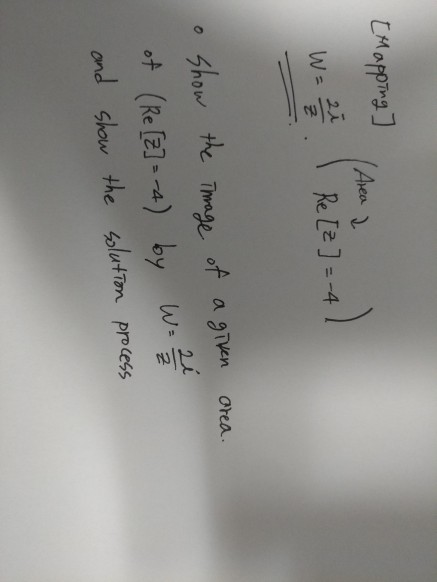 [Mapping]
W = 2i/z . (Area 2 Re[z] = -4)
o Show the image of a given area.
of (Re[z] = -4) by W = 2i/z
and show the solution process